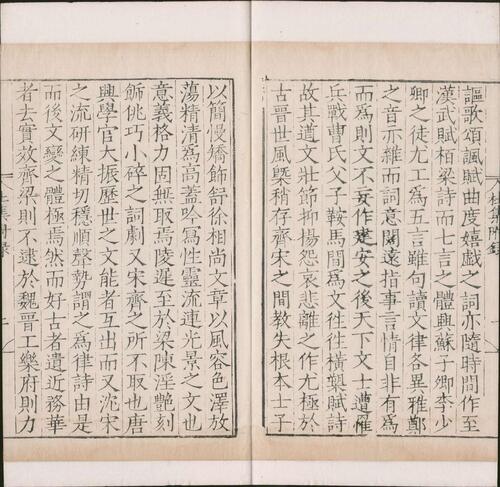 謳歌頌諷賦曲度嬉戲之詞亦隨時間作至
漢武賦栢梁詩而七言之體興蘇子卿李少
卿之徒尤工爲五言雖句讀文律各異雅鄭
之音亦雜而詞意闊遠指事言情自非有爲
而爲則文不妄作建安之後天下文士遭罹
兵戰曹氏父子鞍馬間爲文徃徃橫槊賦詩
故其遒文壯節抑揚怨哀悲離之作尤極於
古晉世風槩稍存齊宋之間教失根本士子
以簡慢矯飾舒徐相尚文章以風容色澤放
蕩精清爲高蓋吟寫性靈流連光景之文也
意義格力固無取焉陵遲至於梁陳淫艷刻
飾佻巧小碎之詞劇又宋齊之所不取也唐
興學官大振歷世之文能者互出而又沈宋
之流研練精切穩順聲勢謂之爲律詩由是
而後文變之體極焉然而好古者遺近務華
者去實效齊梁則不逮於魏晉工樂府則力